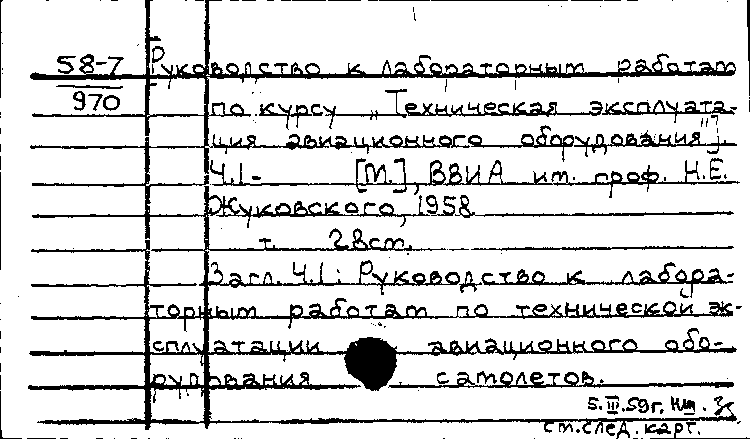 58-7
970
Руководство к лабораторным работам
по курсу „Техническая эксплуата-
ция авиационного оборудования"].
Ч.I- [М.], ВВИА им. проф. Н.Е.
Жуковского, 1958
т. 28см.
Загл. Ч.I: Руководство к лабора-
торным работам по технической эк-
сплуатации авиационного обо-
рудования самолетов.
5.III.59г.
см.след. карт.